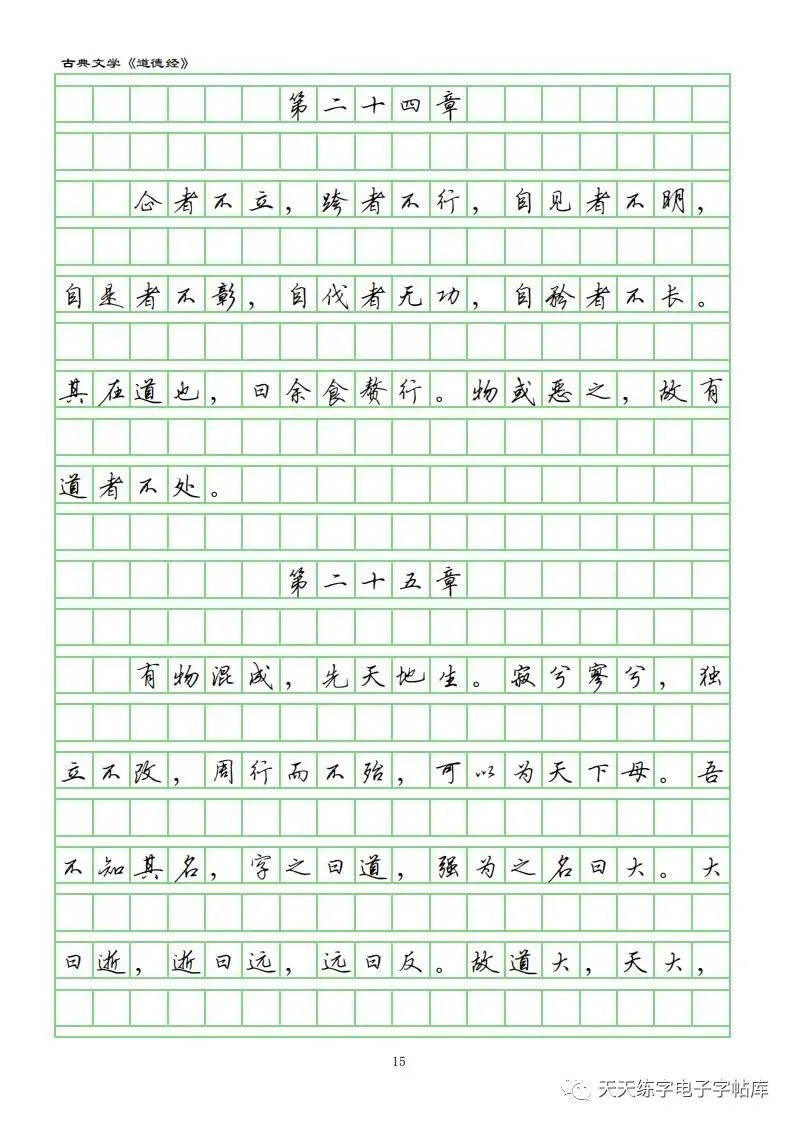 古典文学《道德经》
第二十四章
企者不立，跨者不行，自见者不明，
自是者不彰，自伐者无功，自矜者不长。
其在道也，曰余食赘行。物或恶之，故有
道者不处。
第二十五章
有物混成，先天地生。寂兮寥兮，独
立不改，周行而不殆，可以为天下母。吾
不知其名，字之曰道，强为之名曰大。大
曰逝，逝曰远，远曰反。故道大，天大，
15
天天练字电子字帖库